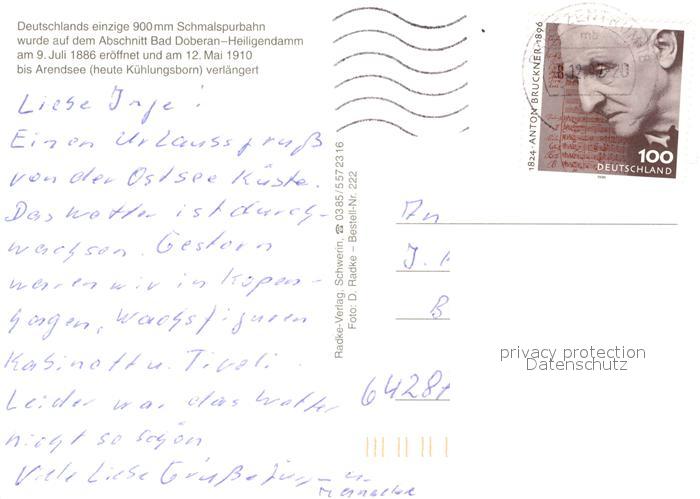 Deutschlands einzige 900mm Schmalspurbahn
wurde auf dem Abschnitt Bad Doberan–Heiligendamm
am 9. Juli 1886 eröffnet und am 12. Mai 1910
bis Arendsee (heute Kühlungsborn) verlängert
Liebe Inge!
Einen Urlaubsgruß
von der Ostsee Küste.
Das Wetter ist durch-
wachsen. Gestern
waren wir in Kopen-
hagen, Wachsfiguren
Kabinett u. Tivoli.
Leider war das Wetter
nicht so schön
Viele Liebe Grüße
Radke-Verlag, Schwerin, ☎ 0385/5572316
Foto: D. Radke – Bestell-Nr. 222
1824·ANTON BRUCKNER·1896
100
DEUTSCHLAND
An
J.
B
6428
privacy protection
Datenschutz